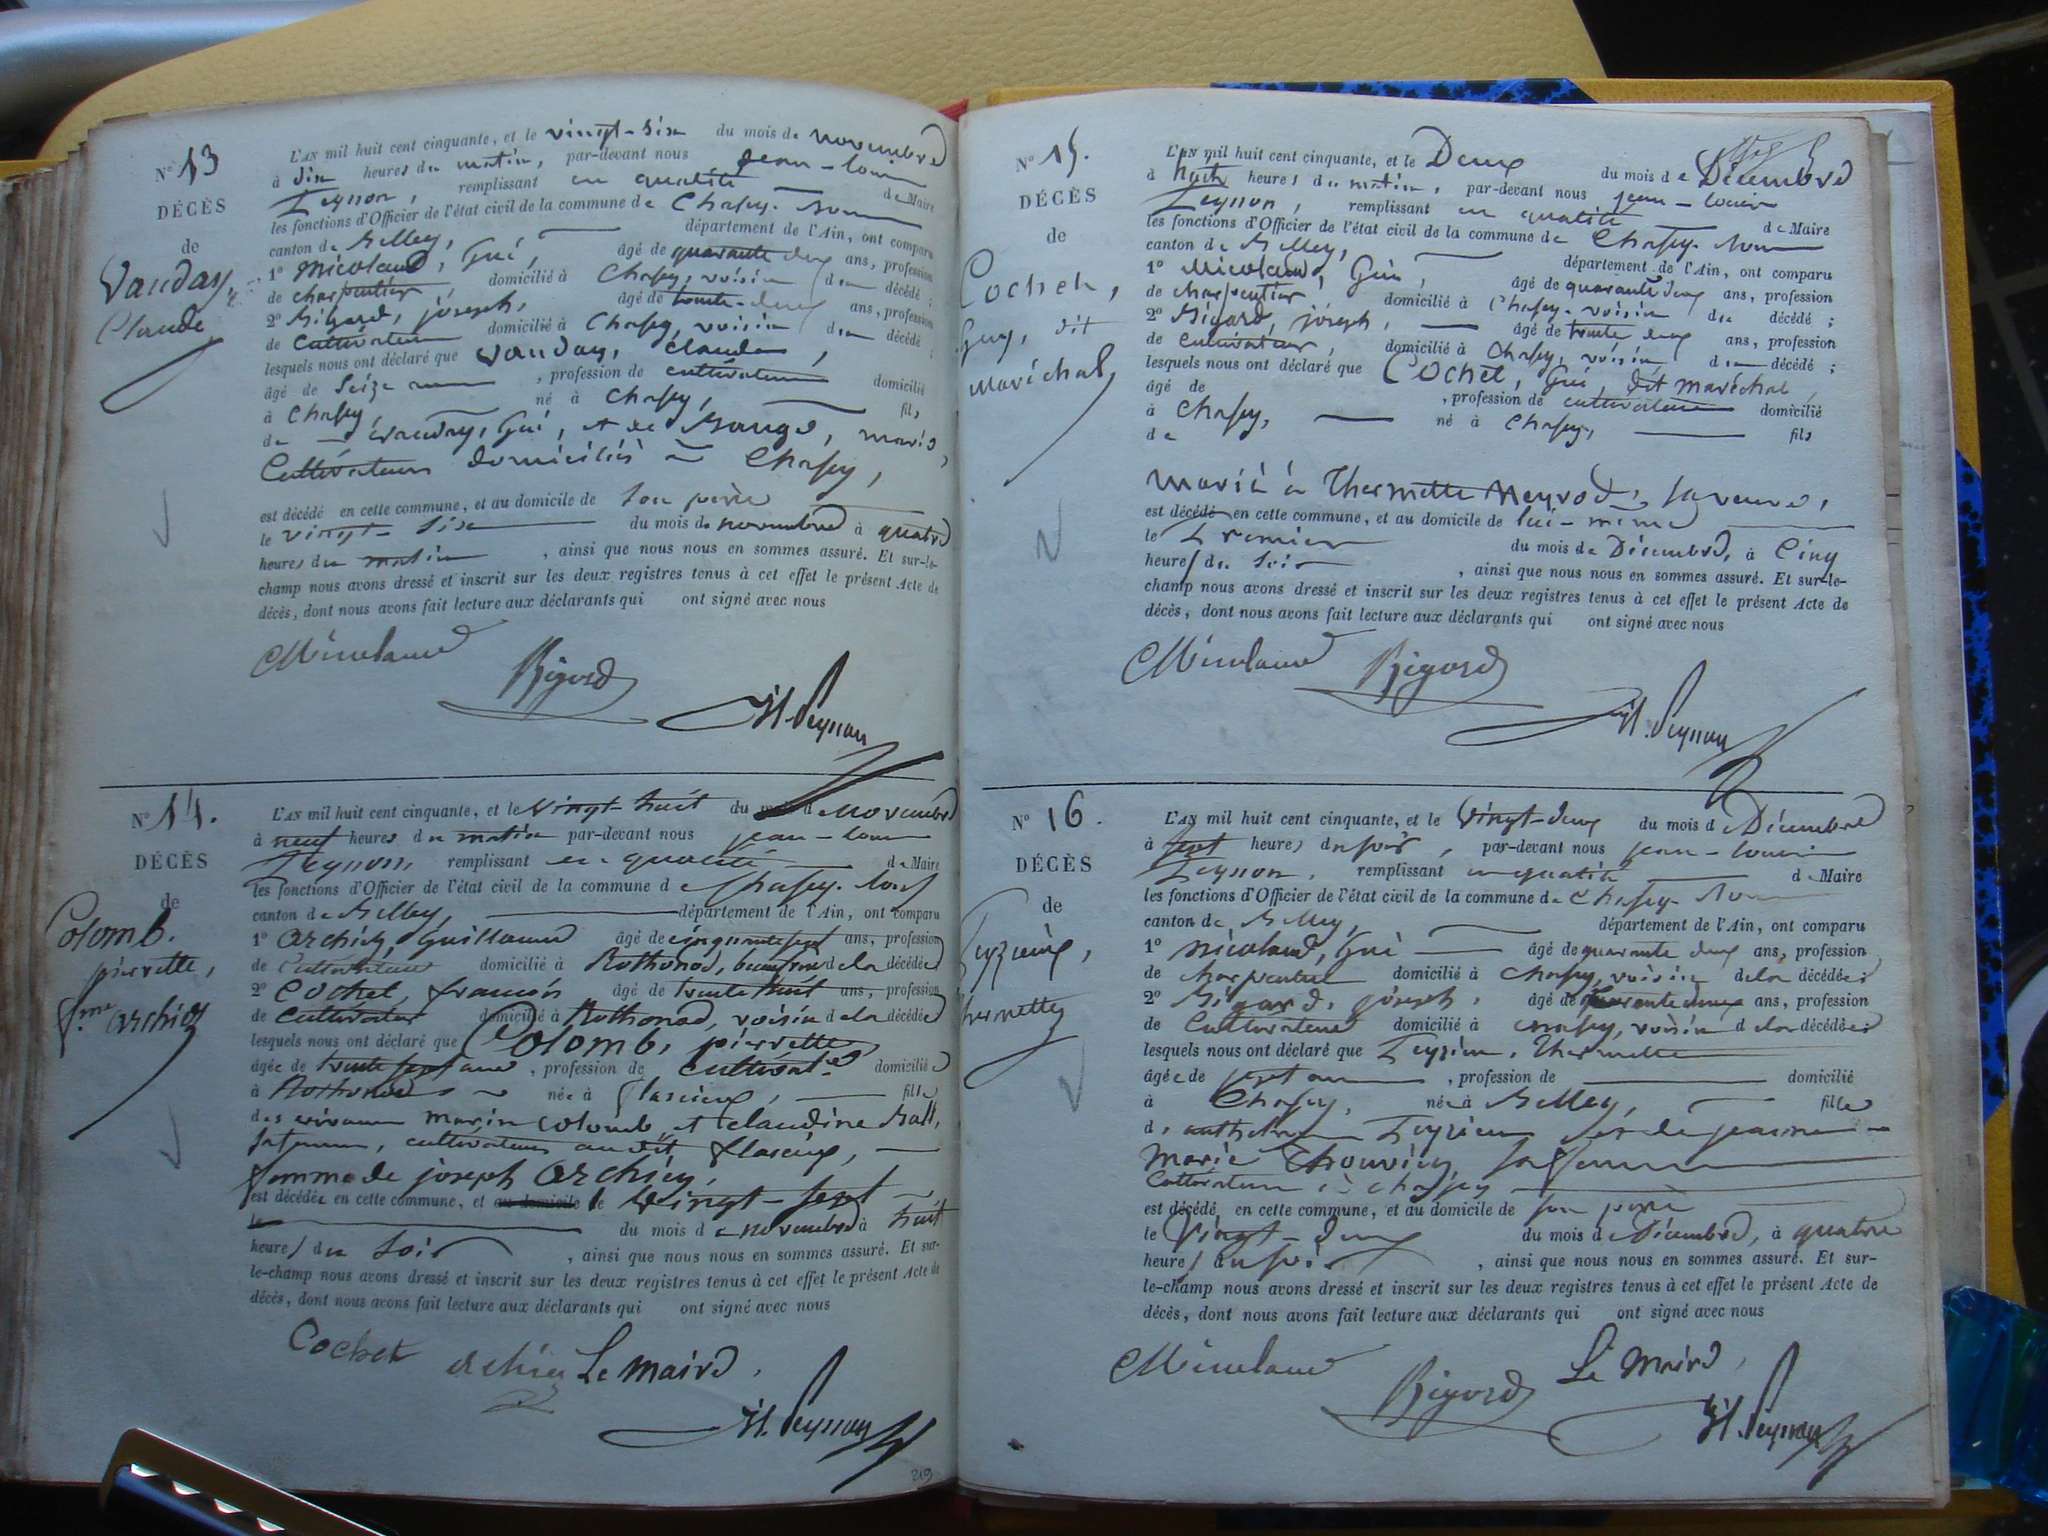 N° 13
DÉCÈS
de
Vauday,
Claude
L'AN mil huit cent cinquante, et le vingt-six du mois de novembre
à dix heures du matin, par-devant nous jean-louis
Peynon, remplissant en qualité de Maire
les fonctions d'Officier de l'état civil de la commune de Chasey-
canton de Belley, département de l'Ain, ont comparu
1° Micoland, Gui, âgé de quarante deux ans, profession
de charpentier, domicilié à Chasey, voisin du décédé;
2° Rigard, joseph, âgé de trente-deux ans, profession
de Cultivateur domicilié à Chasey, voisin du décédé;
lesquels nous ont déclaré que Vauday, Claude,
âgé de Seize ans, profession de cultivateur domicilié
à Chasey, né à Chasey, fils
de Vauday, Gui, et de mariés,
Cultivateurs domiciliés à Chasey,
est décédé en cette commune, et au domicile de son père
le vingt-six du mois de novembre à quatre
heures du matin, ainsi que nous nous en sommes assuré. Et sur-le-
champ nous avons dressé et inscrit sur les deux registres tenus à cet effet le présent Acte de
décès, dont nous avons fait lecture aux déclarants qui ont signé avec nous
Micoland Rigord Peynon
N° 14.
DÉCÈS
de
Colomb.
pierrette,
fme archiez
L'AN mil huit cent cinquante, et le vingt-huit du mois de novembre
à neuf heures du matin par-devant nous jean-louis
Peynon, remplissant en qualité de Maire
les fonctions d'Officier de l'état civil de la commune de Chasey-
canton de Belley, département de l'Ain, ont comparu
1° archiez, Guillaume âgé de cinquante sept ans, profession
de Cultivateur domicilié à Rothonod, de la décédée
2° Cochet, françois âgé de trente huit ans, profession
de Cultivateur domicilié à Rothonod, voisin de la décédée
lesquels nous ont déclaré que Colomb, pierrette
âgée de trente sept ans, profession de cultivat.ce domiciliée
à Rothonod née à flaxieux, fille
des vivans marin colomb et claudine
sa femme, cultivateurs audit flaxieux,
femme de joseph archiez,
est décédée en cette commune, et au domicile le vingt-sept
le du mois de novembre à huit
heures du soir, ainsi que nous nous en sommes assuré. Et sur-
le-champ nous avons dressé et inscrit sur les deux registres tenus à cet effet le présent Acte de
décès, dont nous avons fait lecture aux déclarants qui ont signé avec nous
Cochet archiez Le maire,
Peynon
219
N° 15.
DÉCÈS
de
Cochet,
Guy, dit
maréchal,
L'AN mil huit cent cinquante, et le Deux du mois de Décembre
à huit heures du matin, par-devant nous jean-louis
Peynon, remplissant en qualité de Maire
les fonctions d'Officier de l'état civil de la commune de Chasey-
canton de Belley, département de l'Ain, ont comparu
1° Micoland, Gui, âgé de quarante deux ans, profession
de charpentier, domicilié à Chasey, voisin du décédé;
2° Rigard, joseph, âgé de trente deux ans, profession
de cultivateur, domicilié à Chasey, voisin du décédé;
lesquels nous ont déclaré que Cochet, Gui, dit maréchal,
âgé de, profession de cultivateur domicilié
à Chasey, né à Chasey, fils
de
marié à Thermette Meyrod, sa veuve,
est décédé en cette commune, et au domicile de lui-même
le Premier du mois de Décembre, à Cinq
heures du soir, ainsi que nous nous en sommes assuré. Et sur-le-
champ nous avons dressé et inscrit sur les deux registres tenus à cet effet le présent Acte de
décès, dont nous avons fait lecture aux déclarants qui ont signé avec nous
Micoland Rigord Peynon
N° 16.
DÉCÈS
de
Peyzieux,
Thermette
L'AN mil huit cent cinquante, et le vingt-deux du mois d Décembre
à sept heures du soir, par-devant nous jean-louis
Peynon, remplissant en qualité de Maire
les fonctions d'Officier de l'état civil de la commune de Chasey-
canton de Belley, département de l'Ain, ont comparu
1° Micoland, Gui âgé de quarante deux ans, profession
de charpentier domicilié à Chasey, voisin de la décédée;
2° Rigard, joseph, âgé de ans, profession
de Cultivateur domicilié à Chasey, voisin de la décédée;
lesquels nous ont déclaré que Peyzieux, Thermette
âgée de sept ans, profession de domicilié
à Chasey, née à Belley, fille
d' anthelme Peyzieux et de jeanne
marie Thouviey, sa femme
Cultivateurs à Chasey
est décédé, en cette commune, et au domicile de son père
le Vingt-deux du mois de Décembre, à quatre
heures du soir, ainsi que nous nous en sommes assuré. Et sur-
le-champ nous avons dressé et inscrit sur les deux registres tenus à cet effet le présent Acte de
décès, dont nous avons fait lecture aux déclarants qui ont signé avec nous
Micoland Rigord Le Maire,
Peynon